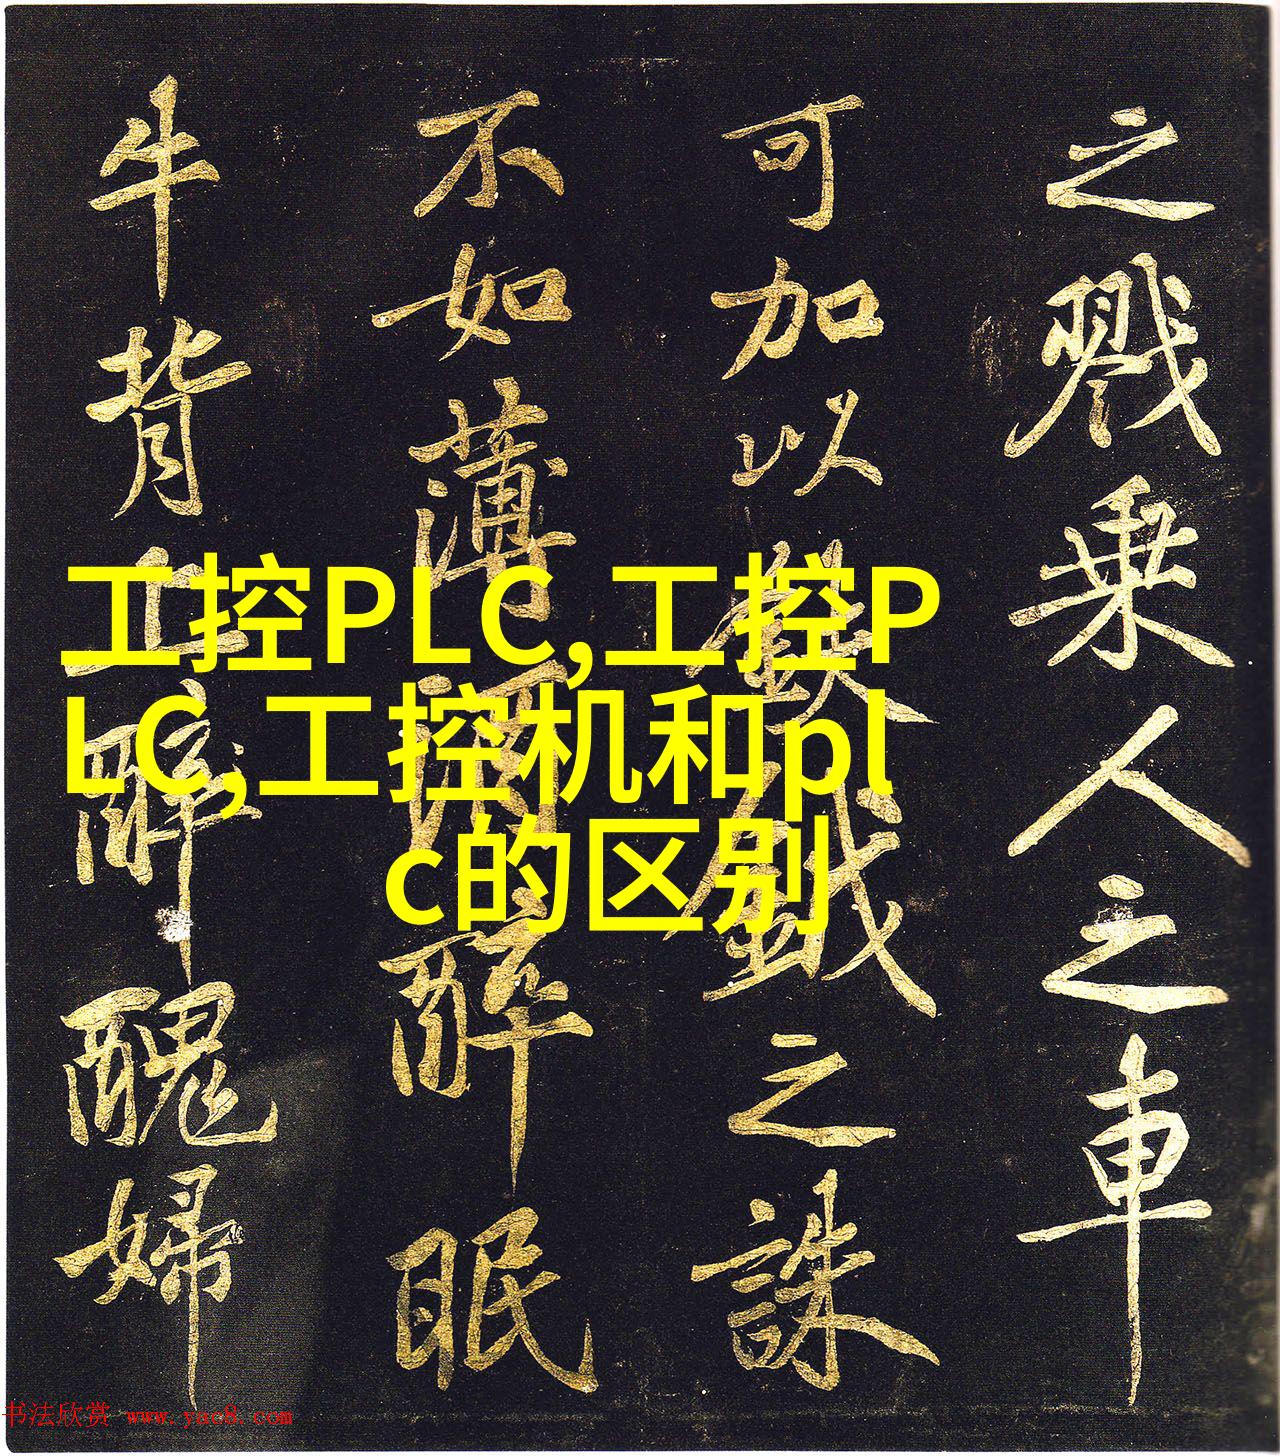 之戮乘人之車
可加以鉞之誅
不如薄酒醉眠
牛背上醉醜婦
工控PLC,工控P
LC,工控机和pl
c的区别
书法欣赏 www.yac8.com